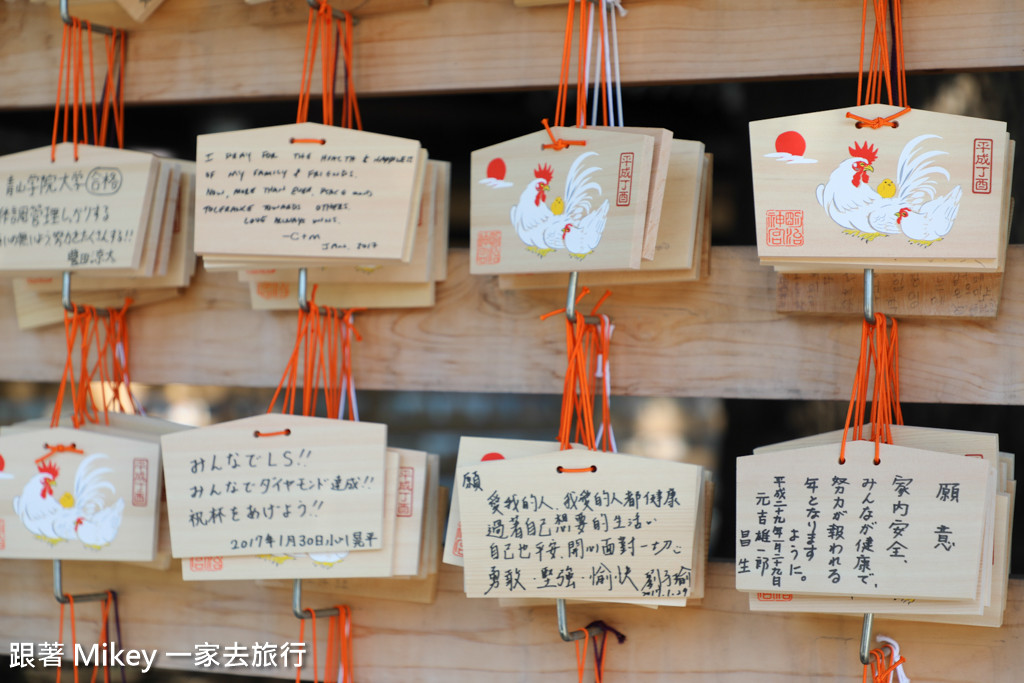 青山学院大学合格
体調管理しっかりする
豊田涼太
I PRAY FOR THE HEALTH & HAPPINESS
OF MY FAMILY & FRIENDS.
NOW, MORE THAN EVER, PEACE AND
TOLERANCE TOWARDS OTHERS.
LOVE ALWAYS WINS.
-C+M
JAN. 2017
平成丁酉
平成丁酉
明治神宮
平成丁酉
みんなでLS!!
みんなでダイヤモンド達成!!
祝杯をあげよう!!
2017年1月30日小川晃平
平成丁酉
願
愛我的人、我愛的人都健康
過著自己想要的生活、
自己也平安、開心面對一切、
勇敢、堅強、愉快 劉子瑜
2017.1.29
願意
家内安全、
みんなが健康で、
努力が報われる
年となります
ように。
平成二十九年一月二十九日
元吉雄一郎
昌生
跟著 Mikey 一家去旅行